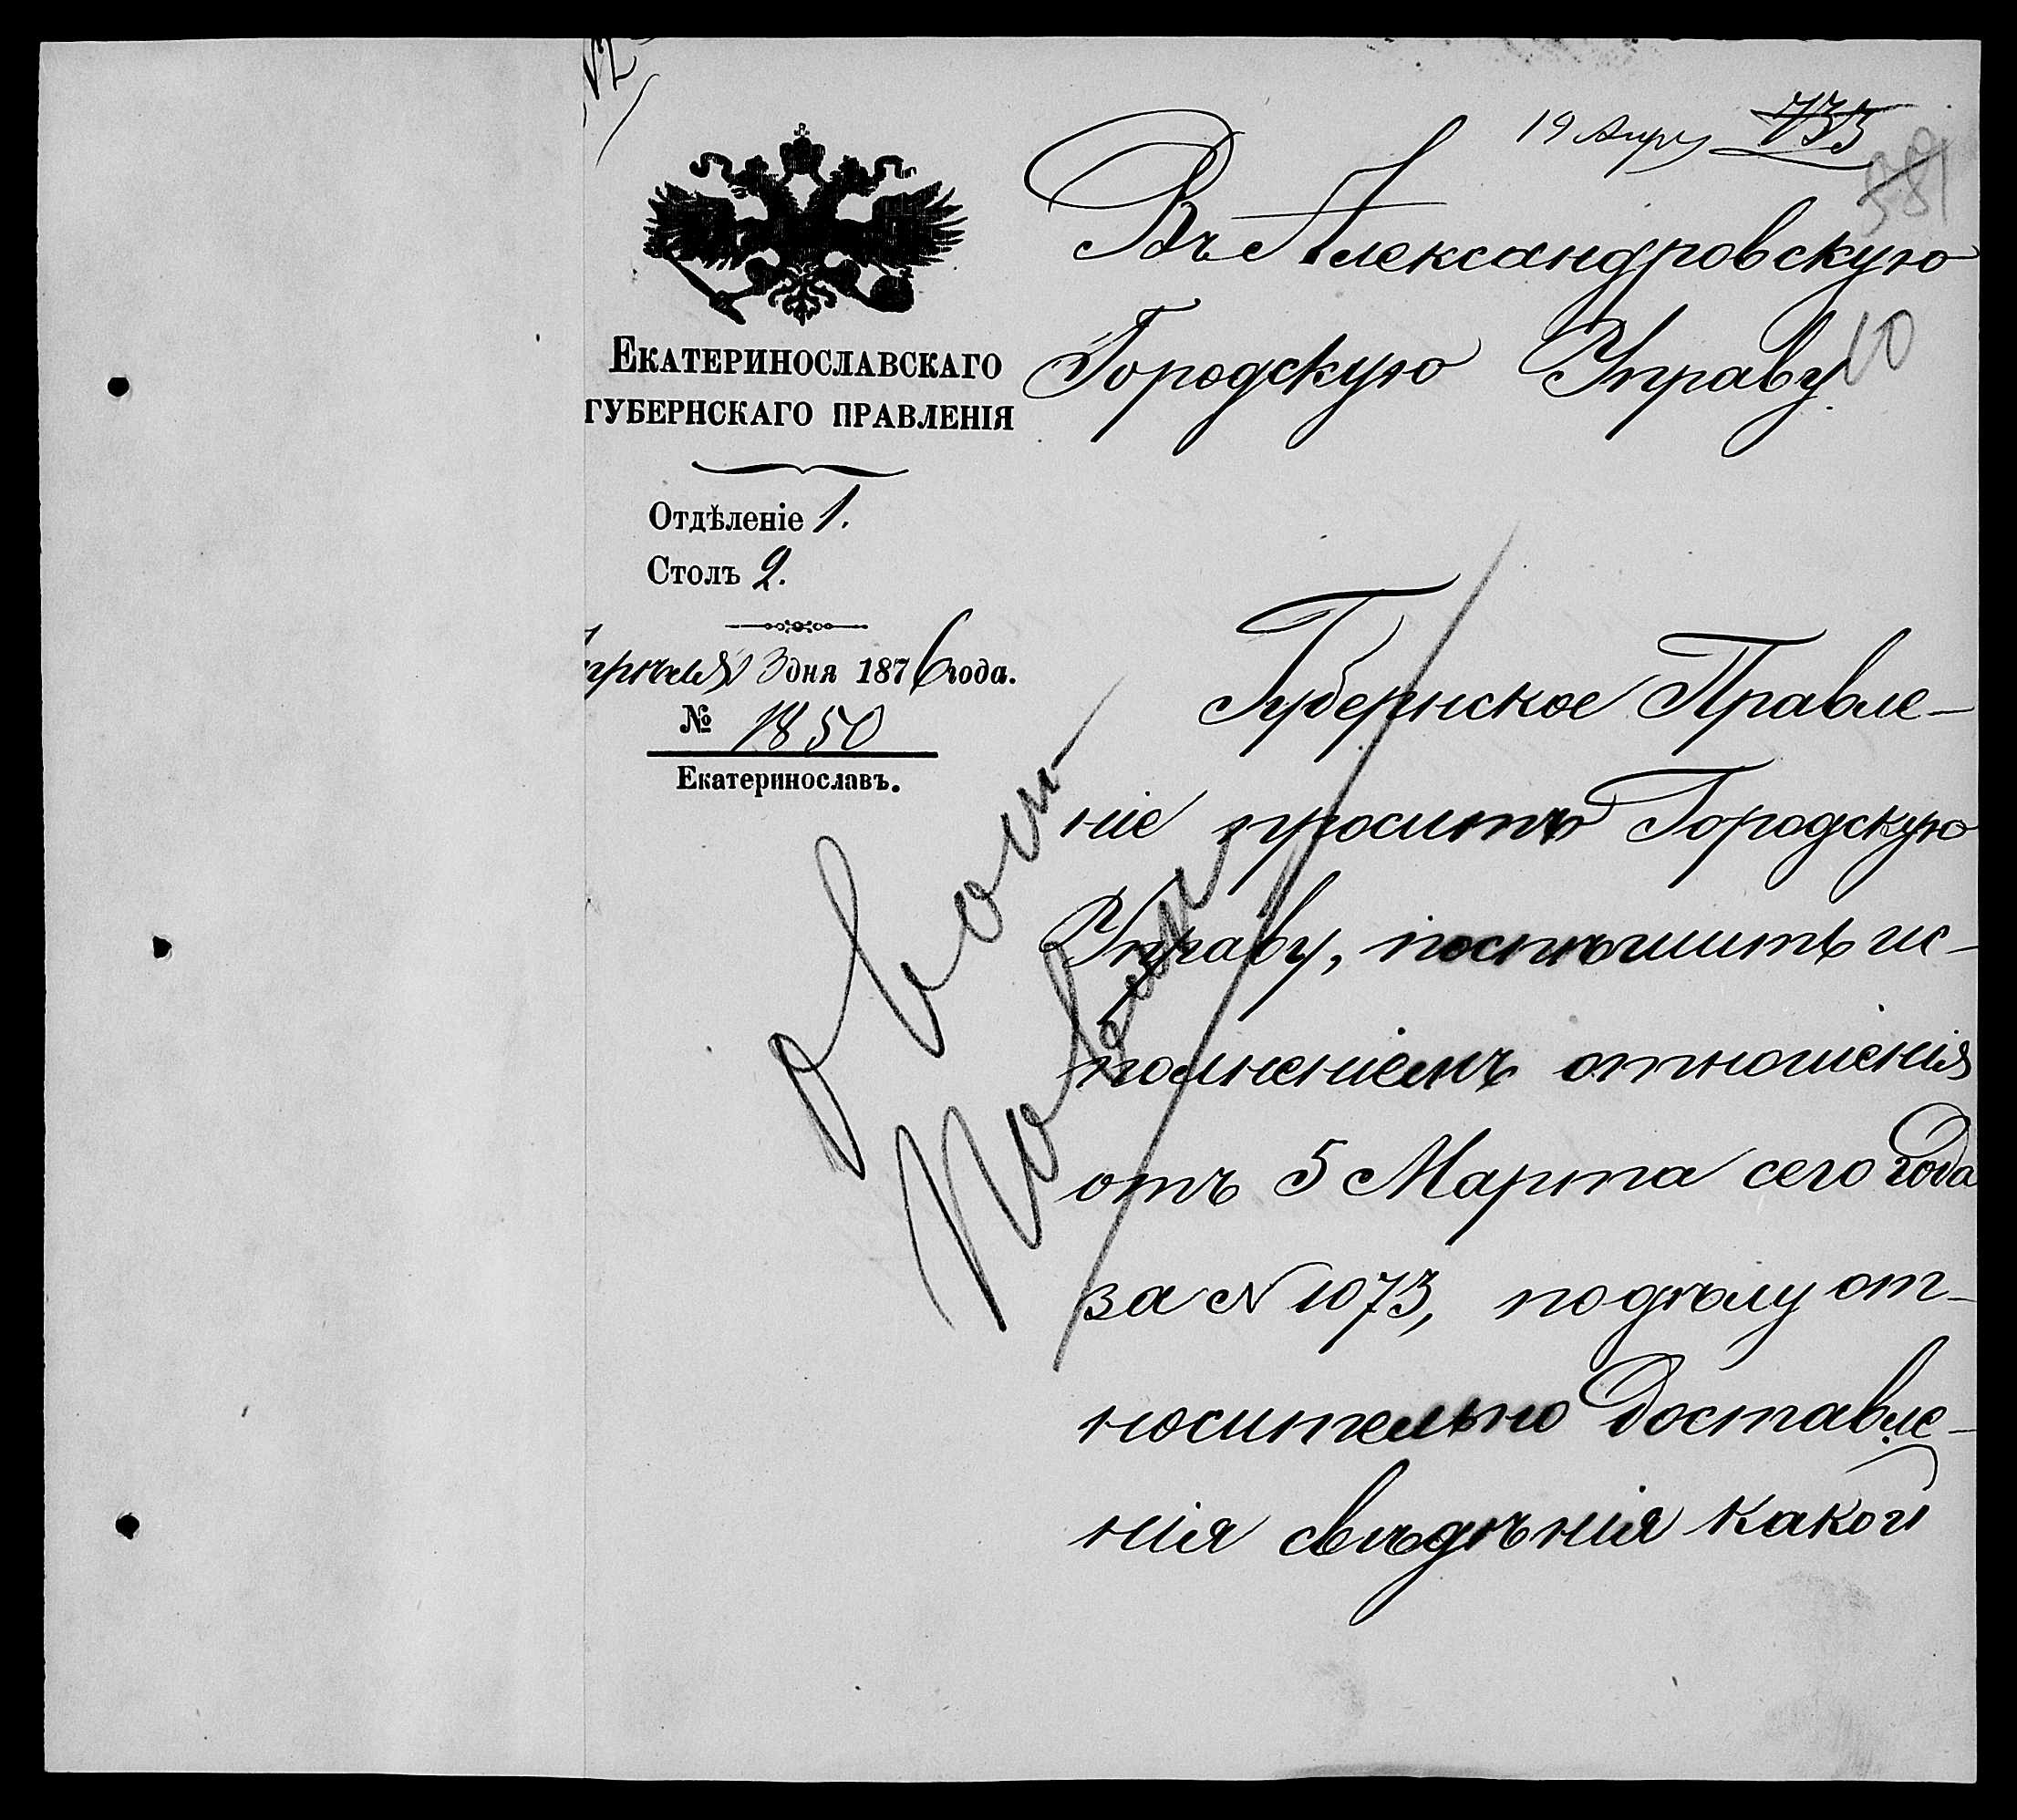 19 Апр 733
381
Въ Александровскую
Городскую Управу
10
ЕКАТЕРИНОСЛАВСКАГО
ГУБЕРНСКАГО ПРАВЛЕНІЯ
Отдѣленіе 1.
Столъ 2.
Апрѣля 3 дня 1876 года.
№ 1850
Екатеринославъ.
Губернское Правле-
ніе проситъ Городскую
Управу, поспѣшить ис-
полненіемъ отношенія
отъ 5 Марта сего года
за N 1073, по дѣлу от-
носительно доставле-
нія свѣдѣнія какой